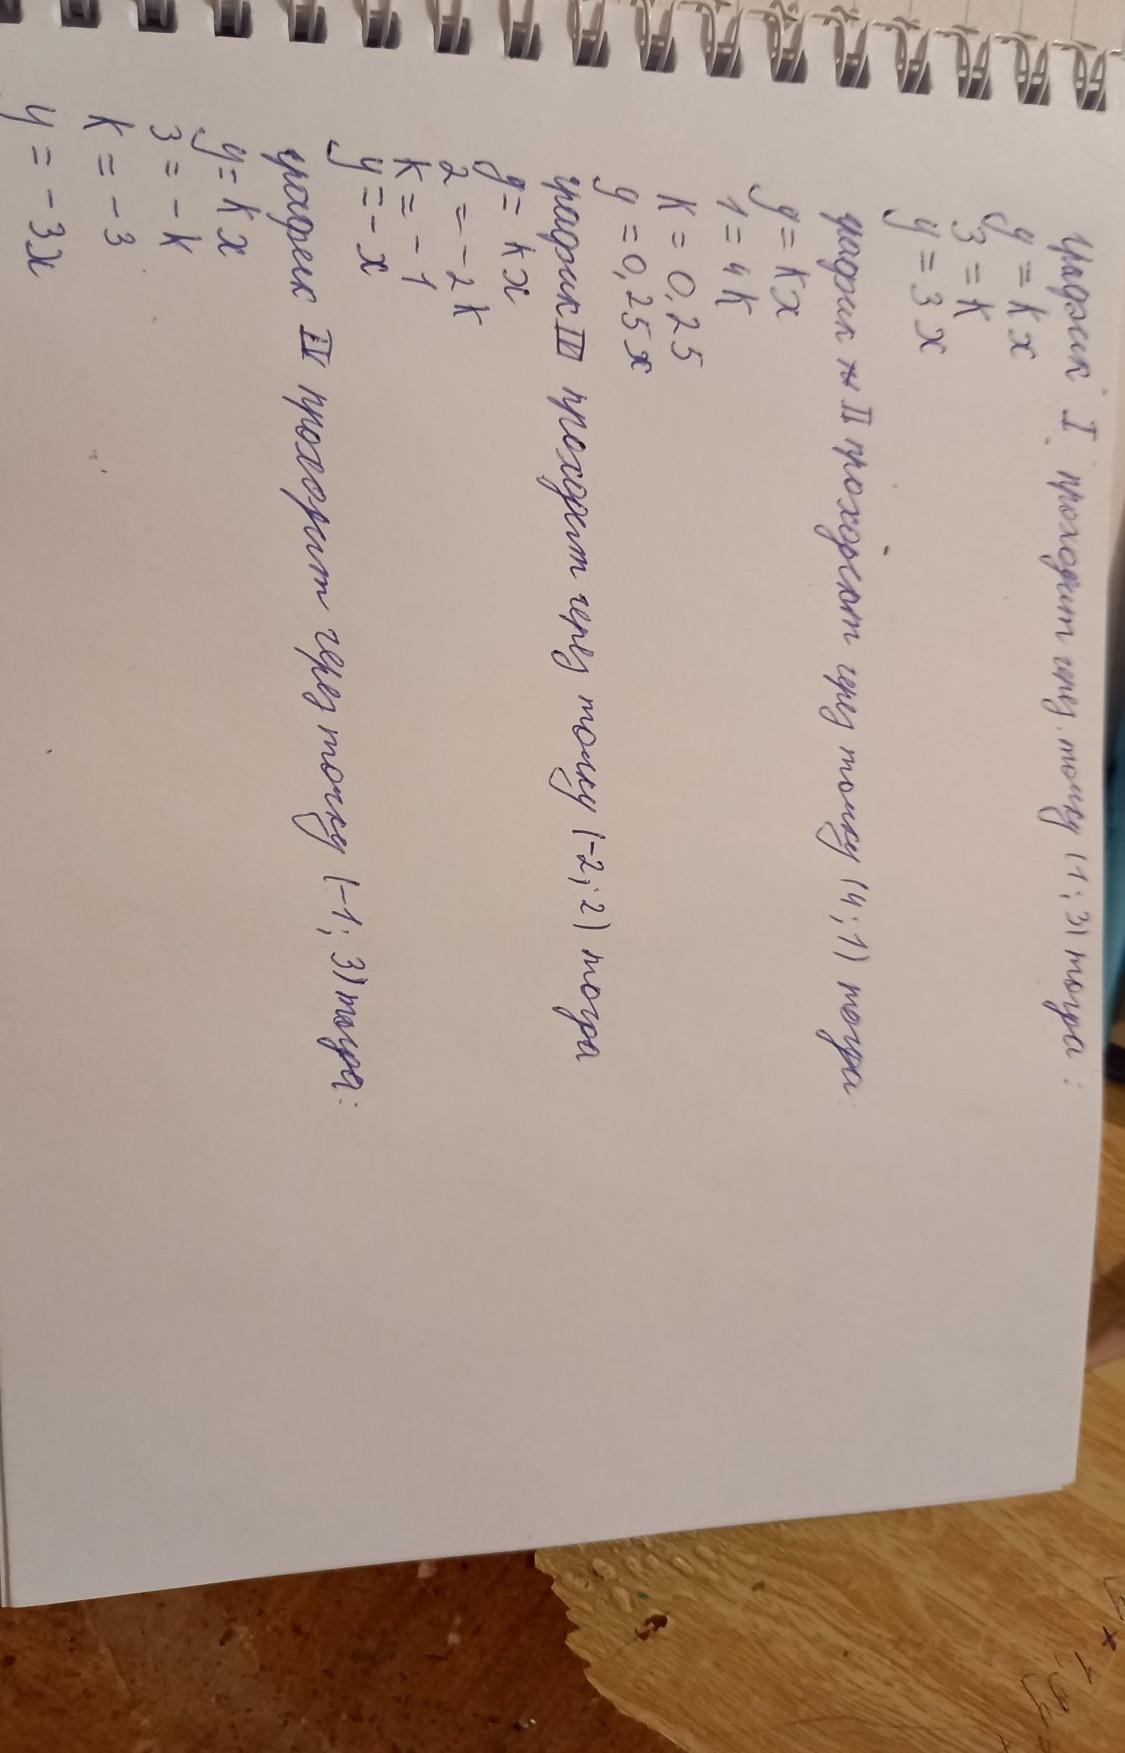 график I проходит через точку (1; 3) тогда:
y = kx
3 = k
y = 3x
график II проходит через точку (4; 1) тогда
y = kx
1 = 4k
k = 0,25
y = 0,25x
график III проходит через точку (-2; 2) тогда
y = kx
2 = -2k
k = -1
y = -x
график IV проходит через точку (-1; 3) тогда:
y = kx
3 = -k
k = -3
y = -3x